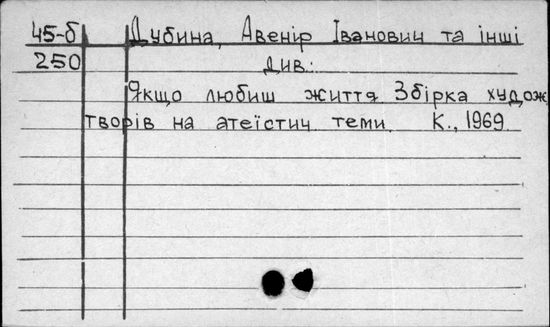 45-б Дубина, Авенір Іванович та інші
250 див.:
Якщо любиш життя. Збірка худож.
творів на атеїстич. теми. К., 1969.